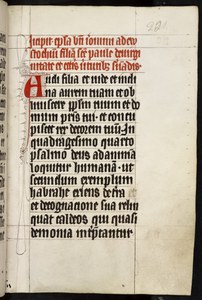 Incipit epla bti ieronimi ad eu
stochium filiā scē paule de virgi
nitate
Audi filia et vide et incli
na aurem tuam et ob
liviscere ipsm tuum et do
mum pris tui et concu
piscet rex decorem tuū In
quadragesimo quarto
psalmo deus ad animā
loquitur humanā ut
secundum exemplum
habrahe exiens de fra
et de cognacione sua relin
quat caldeos qui quasi
demonia interptantur